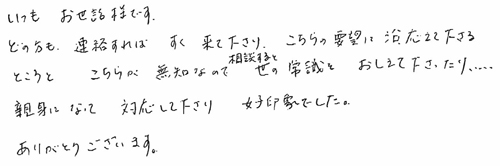 いつも お世話様です。
どの方も、連絡すれば すぐ 来て下さり、こちらの要望に 沿応えて下さる
ところと こちらが 無知なので 相談すると 世の常識を おしえて下さったり、.....
親身になって 対応して下さり 好印象でした。
ありがとうございます。